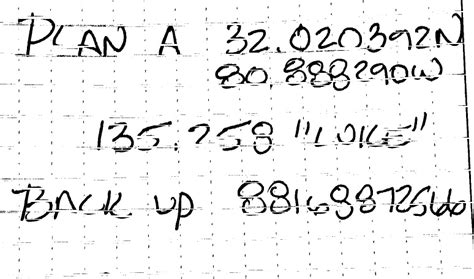 PLAN A 32.020392N
80.888290W
135.258 "LUKE"
BACK UP 881688872566